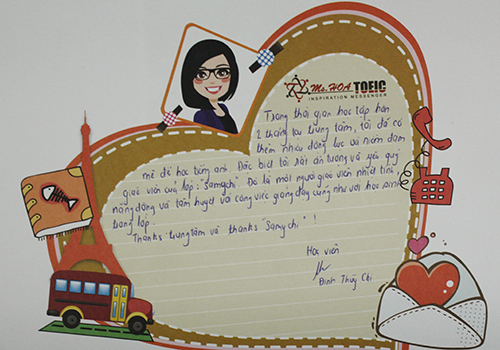 Ms. HOA TOEIC
INSPIRATION MESSENGER
Trong thời gian học tập hơn
2 tháng tại trung tâm, tôi đã có
thêm nhiều động lực và niềm đam
mê để học tiếng anh. Đặc biệt tôi rất ấn tượng và yêu quý
giáo viên của lớp: "Samychi". Đó là một người giáo viên nhiệt tình,
năng động và tâm huyết với công việc giảng dạy cũng như với học sinh
trong lớp.
Thanks trung tâm và thanks "Samychi" !
Học viên
Đinh Thuỳ Chi